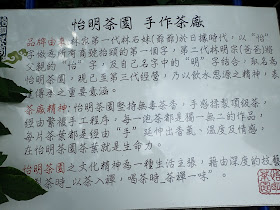 怡明茶園 手作茶廠
品牌由來:林家第一代林石妹(爺爺)於日據時代,以“怡”
字做怡所有商號抬頭的第一個字,第二代林明宗(爸爸)將
父親的“怡”字,及自己名字中的“明”字結合,取名為
怡明茶園,現已至第三代經營,乃以飲水思源之精神,表
傳承之重要意涵。
茶廠精神:怡明茶園堅持無毒茶香,手感揉製頂級茶,
經由繁複手工程序,每一泡茶都是獨一無二的作品,
每片茶葉都是經由“手”延伸出香氣、溫度及情感,
在怡明茶園茶葉就是生命力。
怡明茶園之文化精神為一種生活主張,藉由深度的技藝
製茶時_以茶入禪,喝茶時_茶禪一味”。